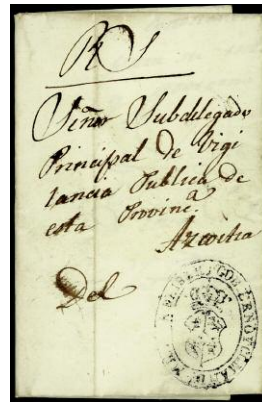 R S
Señor Subdelegado
Principal de Vigi
lancia Publica de
esta Provinc.a
Azcoitia
Del